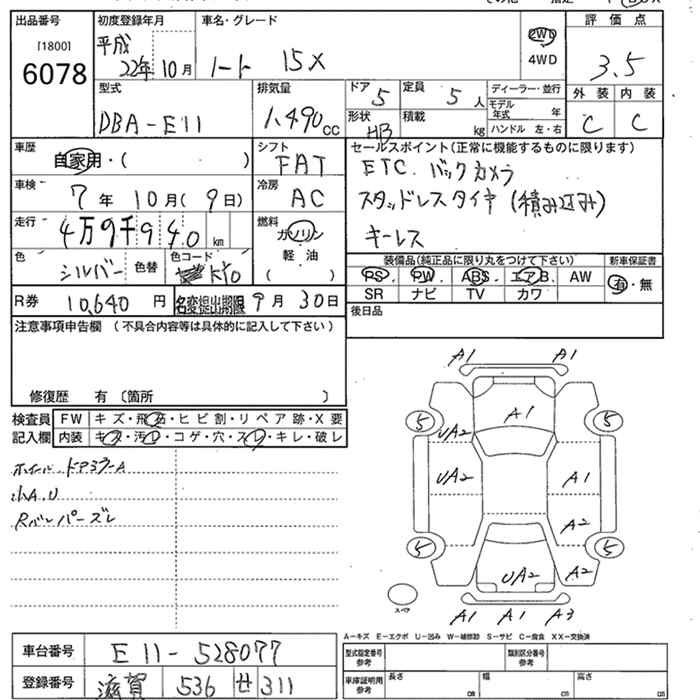 出品番号 初度登録年月 車名・グレード 評価点
[1800] 平成 2WD
6078 22年 10月 ノート 15X 4WD 3.5
型式 排気量 ドア 5 定員 5人 ディーラー・並行 外装 内装
モデル年式 年
DBA-E11 1,490cc 形状 HB 積載 kg ハンドル 左・右 C C
車歴 自家用・( ) シフト FAT セールスポイント(正常に機能するものに限ります)
ETC. バックカメラ
車検 7年 10月( 9日) 冷房 AC スタッドレスタイヤ(積み込み)
走行 4万9千940km 燃料 ガソリン キーレス
軽油
色 シルバー 色替 色コード K10 ( )
装備品(純正品に限り丸をつけて下さい) 新車保証書
PS. PW. ABS. エアB. AW 有・無
SR ナビ TV カワ
R券 10,640円 名変提出期限 9月 30日
後日品
注意事項申告欄 (不具合内容等は具体的に記入して下さい)
修復歴 有 〔箇所 〕
検査員 FW キズ・飛石・ヒビ割・リペア跡・X要
記入欄 内装 キズ・汚レ・コゲ・穴・スレ・キレ・破レ
ホイール ドアミラーA
小A.U
Rバンパーズレ
A1 A1
A1
5 5
UA2
UA2 A1
A2
5 5
UA2 A2
スペア
A1 A1 A3
A-キズ E-エクボ U-凹み W-補修跡 S-サビ C-腐食 XX-交換済
車台番号 E11-528077
型式指定番号 参考 類別区分番号 参考
登録番号 滋賀 536 せ 311
車庫証明用 参考 長さ cm 幅 cm 高さ cm